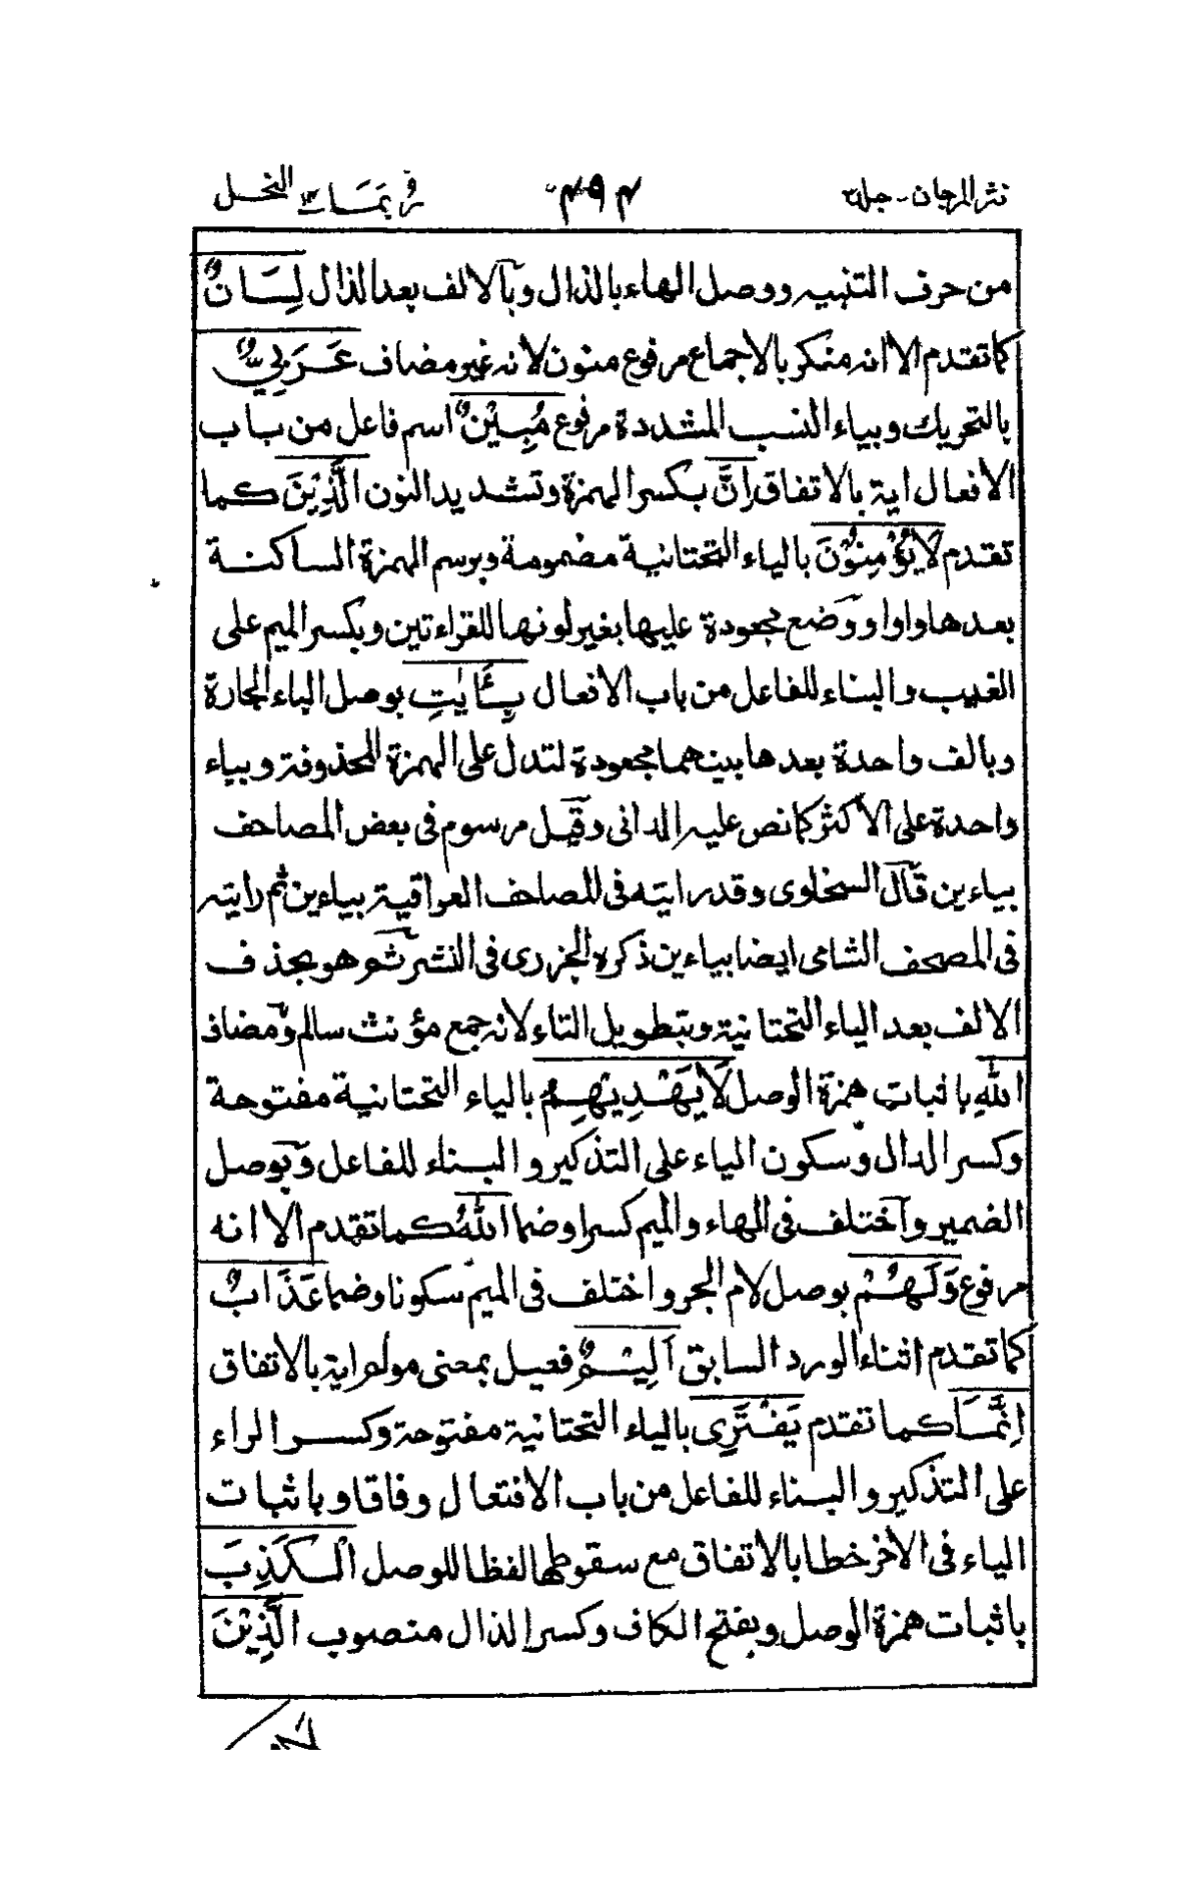 نثر المرجان - جلد ٣
٤٩٤
ربما ١٤ النحل
من حرف التنبيه ووصل الهاء بالذال وبالالف بعد الذال لِسَانٌ
كما تقدم الا انه منكر بالاجماع مرفوع منون لانه غير مضاف عَرَبِيٌّ
بالتحريك وبياء النسب المشددة مرفوع مُبِيْنٌ اسم فاعل من باب
الافعال اية بالاتفاق اِنَّ بكسر الهمزة وتشديد النون الَّذِيْنَ كما
تقدم لَا يُؤْمِنُوْنَ بالياء التحتانية مضمومة وبرسم الهمزة الساكنة
بعدها واوا ووضع مجعودة عليها بغير لونها للقراءتين وبكسر الميم على
الغيب والبناء للفاعل من باب الافعال بِـَٔايٰتِ بوصل الباء الجارة
وبالف واحدة بعدها بينهما مجعودة لتدل على الهمزة المحذوفة وبياء
واحدة على الاكثر كما نص عليه الدانى وقيل مرسوم فى بعض المصاحف
بياءين قال السخاوى وقد رايته فى المصاحف العراقية بياءين ثم رايته
فى المصحف الشامى ايضا بياءين ذكره الجزرى فى النشر ثم هو بحذف
الالف بعد الياء التحتانية وبتطويل التاء لانه جمع مؤنث سالم ومضاف
اللّٰهِ باثبات همزة الوصل لَا يَهْدِيْهِمُ بالياء التحتانية مفتوحة
وكسر الدال وسكون الياء على التذكير والبناء للفاعل وبوصل
الضمير واختلف فى الهاء والميم كسرا وضما اللّٰهُ كما تقدم الا انه
مرفوع وَلَهُمْ بوصل لام الجر واختلف فى الميم سكونا وضما عَذَابٌ
كما تقدم اثناء الورد السابق اَلِيْمٌ فعيل بمعنى مولم اية بالاتفاق
اِنَّمَا كما تقدم يَفْتَرِى بالياء التحتانية مفتوحة وكسر الراء
على التذكير والبناء للفاعل من باب الافتعال وفاقا وباثبات
الياء فى الاخر خطا بالاتفاق مع سقوطها لفظا للوصل الْكَذِبَ
باثبات همزة الوصل وبفتح الكاف وكسر الذال منصوب الَّذِيْنَ